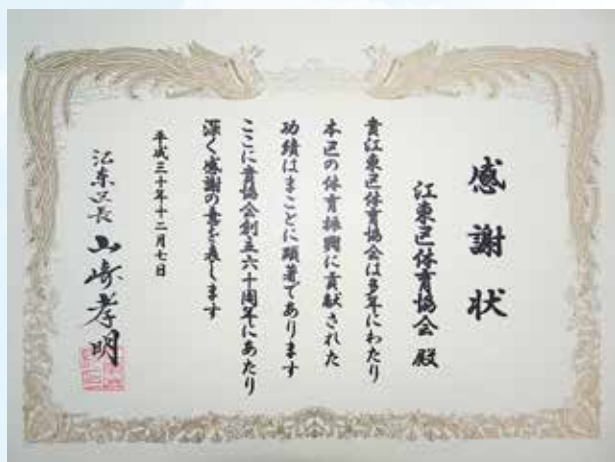 感謝状
江東区体育協会 殿
貴江東区体育協会は多年にわたり
本区の体育振興に貢献された
功績はまことに顕著であります
ここに貴協会創立六十周年にあたり
深く感謝の意を表します
平成三十年十二月七日
江東区長 山崎孝明